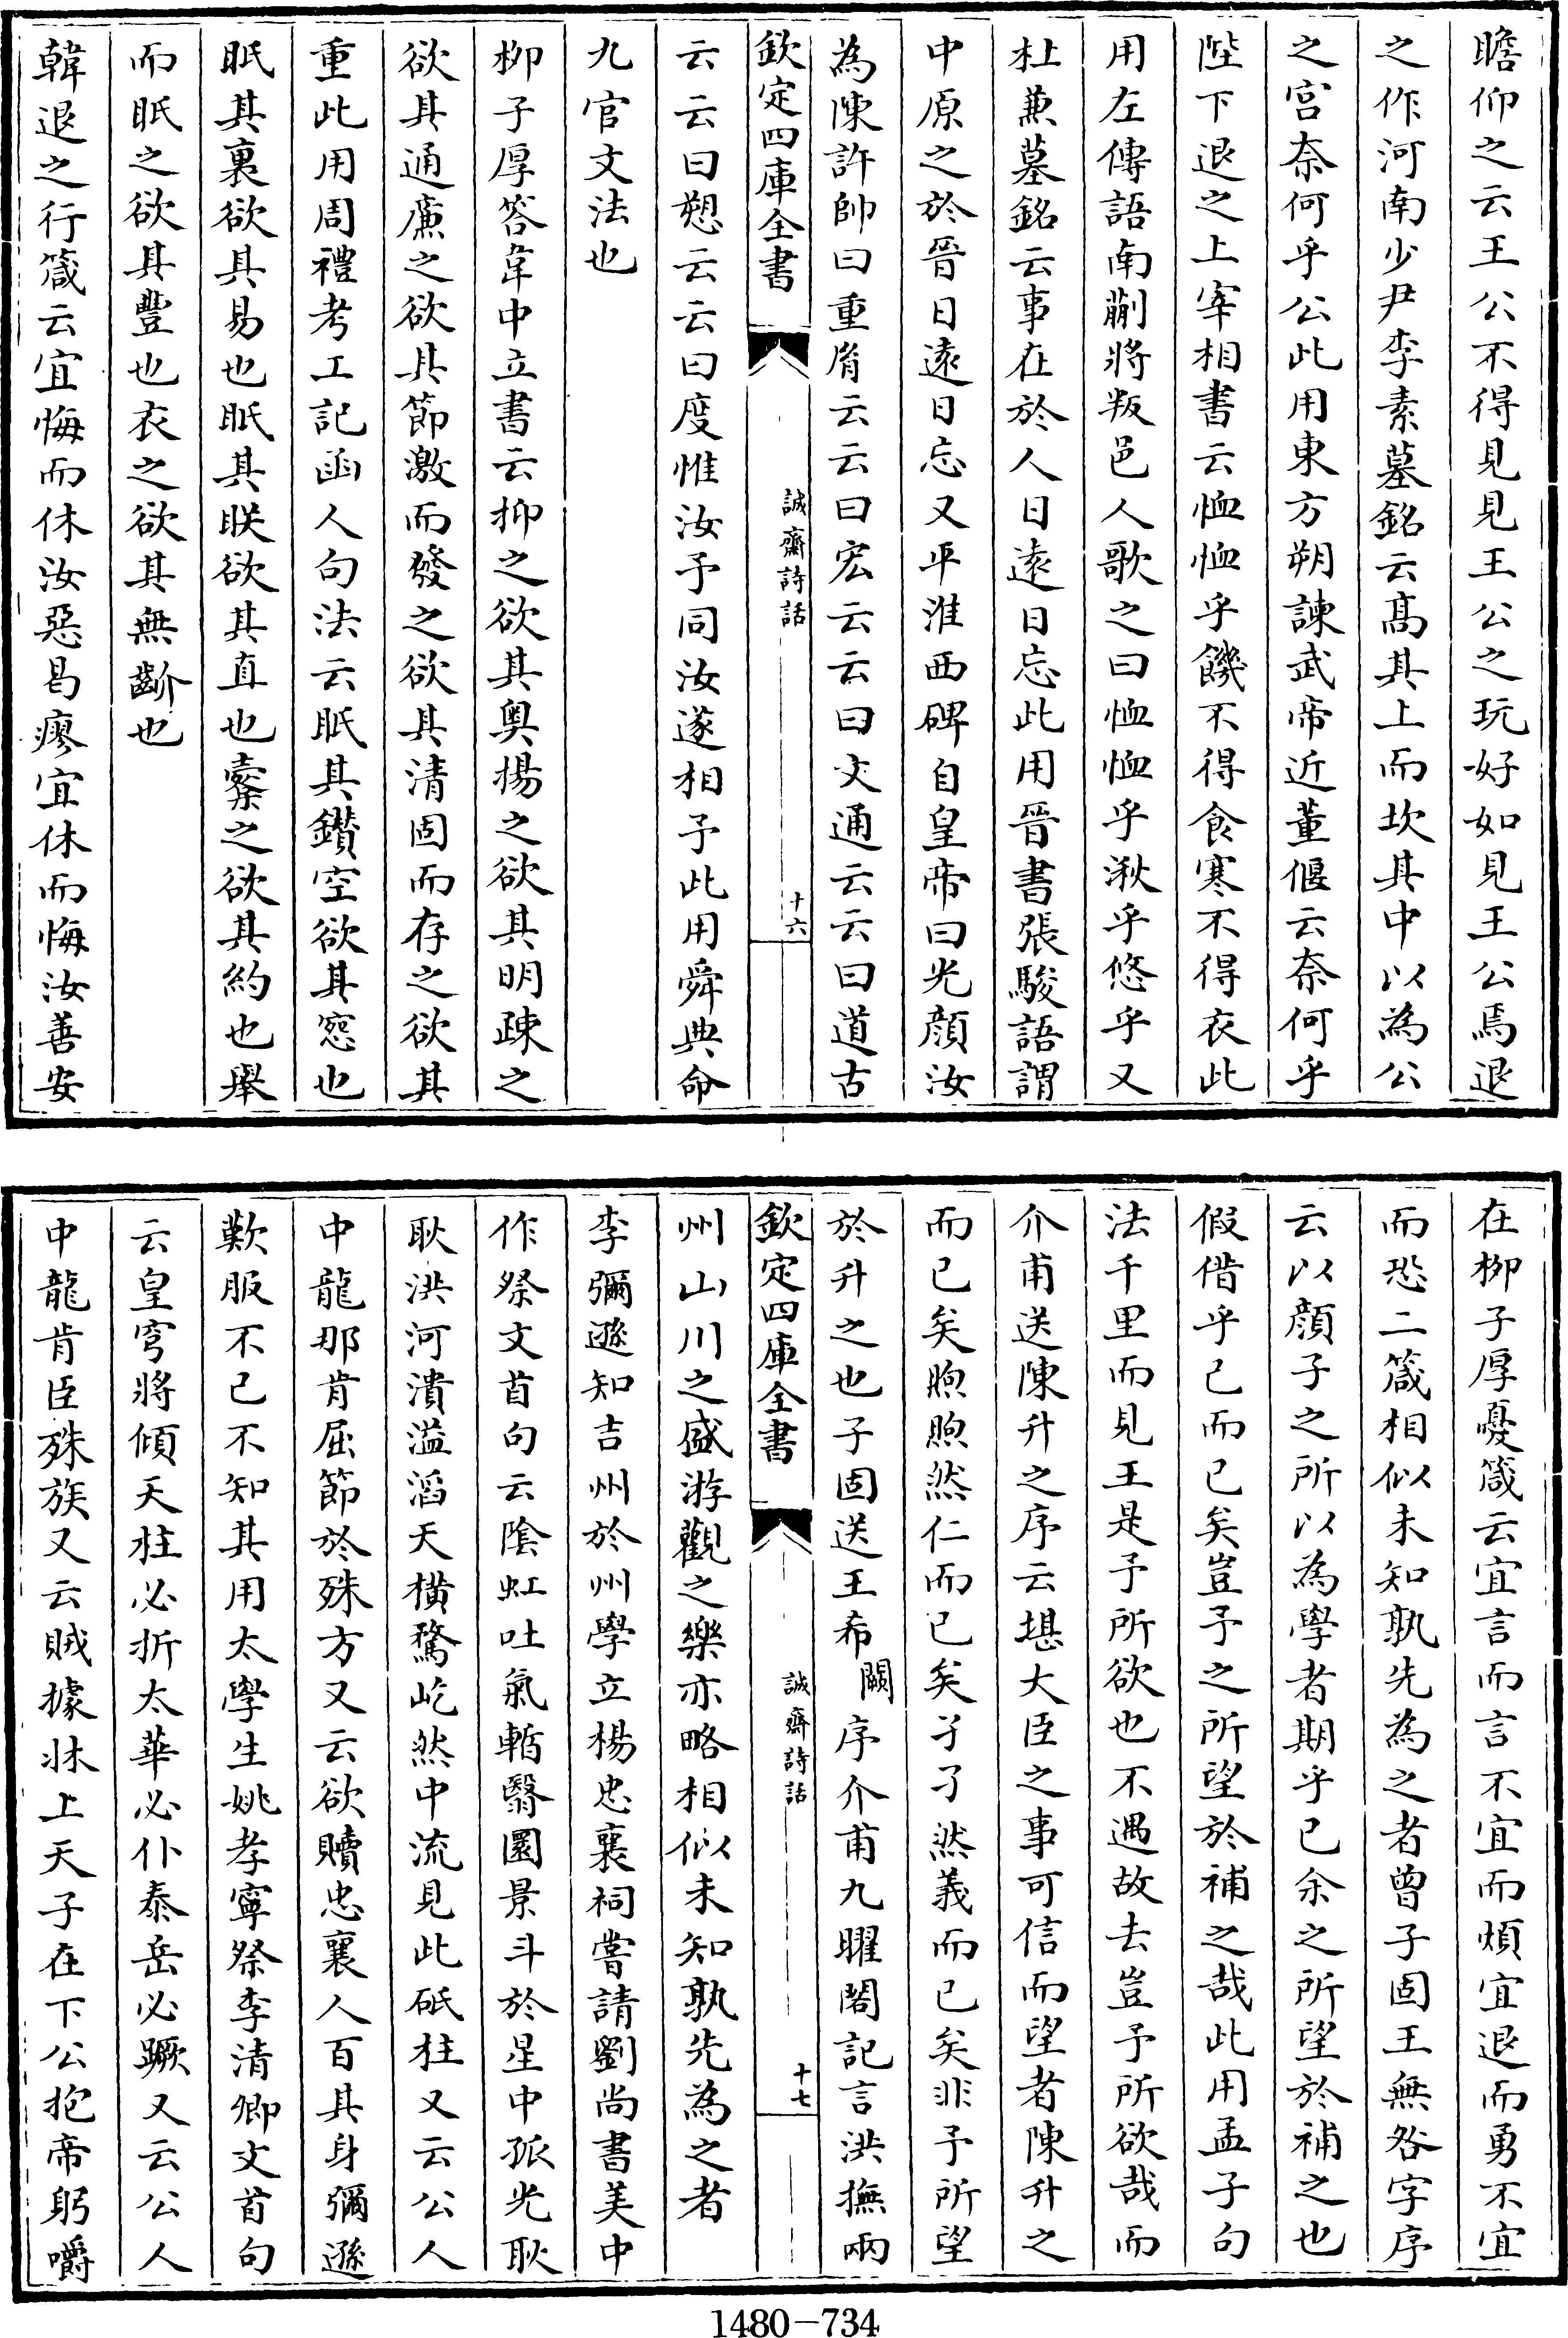 瞻仰之云王公不得見見王公之玩好如見王公焉退
之作河南少尹李素墓銘云髙其上而坎其中以為公
之宫奈何乎公此用東方朔諫武帝近董偃云奈何乎
陛下退之上宰相書云恤恤乎饑不得食寒不得衣此
用左傳語南蒯將叛邑人歌之曰恤恤乎湫乎悠乎又
杜兼墓銘云事在於人日逺日忘此用晉書張駿語謂
中原之於晉日逺日忘又平淮西碑自皇帝曰光顔汝
為陳許帥曰重脣云云曰宏云云曰文通云云曰道古
欽定四庫全書
誠齋詩話
十六
云云曰愬云云曰度惟汝予同汝遂相予此用舜典命
九官文法也
栁子厚答韋中立書云抑之欲其奥揚之欲其明疎之
欲其通亷之欲其節激而發之欲其清固而存之欲其
重此用周禮考工記函人句法云眂其鑚空欲其窓也
眂其裏欲其易也眂其朕欲其直也櫜之欲其約也舉
而眂之欲其豐也衣之欲其無齘也
韓退之行箴云宜悔而休汝惡曷瘳宜休而悔汝善安
在栁子厚憂箴云宜言而言不宜而煩宜退而勇不宜
而恐二箴相似未知孰先為之者曾子固王無咎字序
云以顔子之所以為學者期乎已余之所望於補之也
假借乎已而已矣豈予之所望於補之哉此用孟子句
法千里而見王是予所欲也不遇故去豈予所欲哉而
介甫送陳升之序云堪大臣之事可信而望者陳升之
而已矣煦煦然仁而已矣孑孑然義而已矣非予所望
於升之也子固送王希闕序介甫九曜閣記言洪撫兩
欽定四庫全書
誠齋詩話
十七
州山川之盛游觀之樂亦略相似未知孰先為之者
李彌遜知吉州於州學立楊忠襄祠嘗請劉尚書美中
作祭文首句云隂虹吐氣暫翳圜景斗於星中孤光耿
耿洪河潰溢滔天横騖屹然中流見此砥柱又云公人
中龍那肯屈節於殊方又云欲贖忠襄人百其身彌遜
歎服不已不知其用太學生姚孝寧祭李清卿文首句
云皇穹將傾天柱必折太華必仆泰岳必蹶又云公人
中龍肯臣殊族又云賊據牀上天子在下公抱帝躬嚼
1480-734